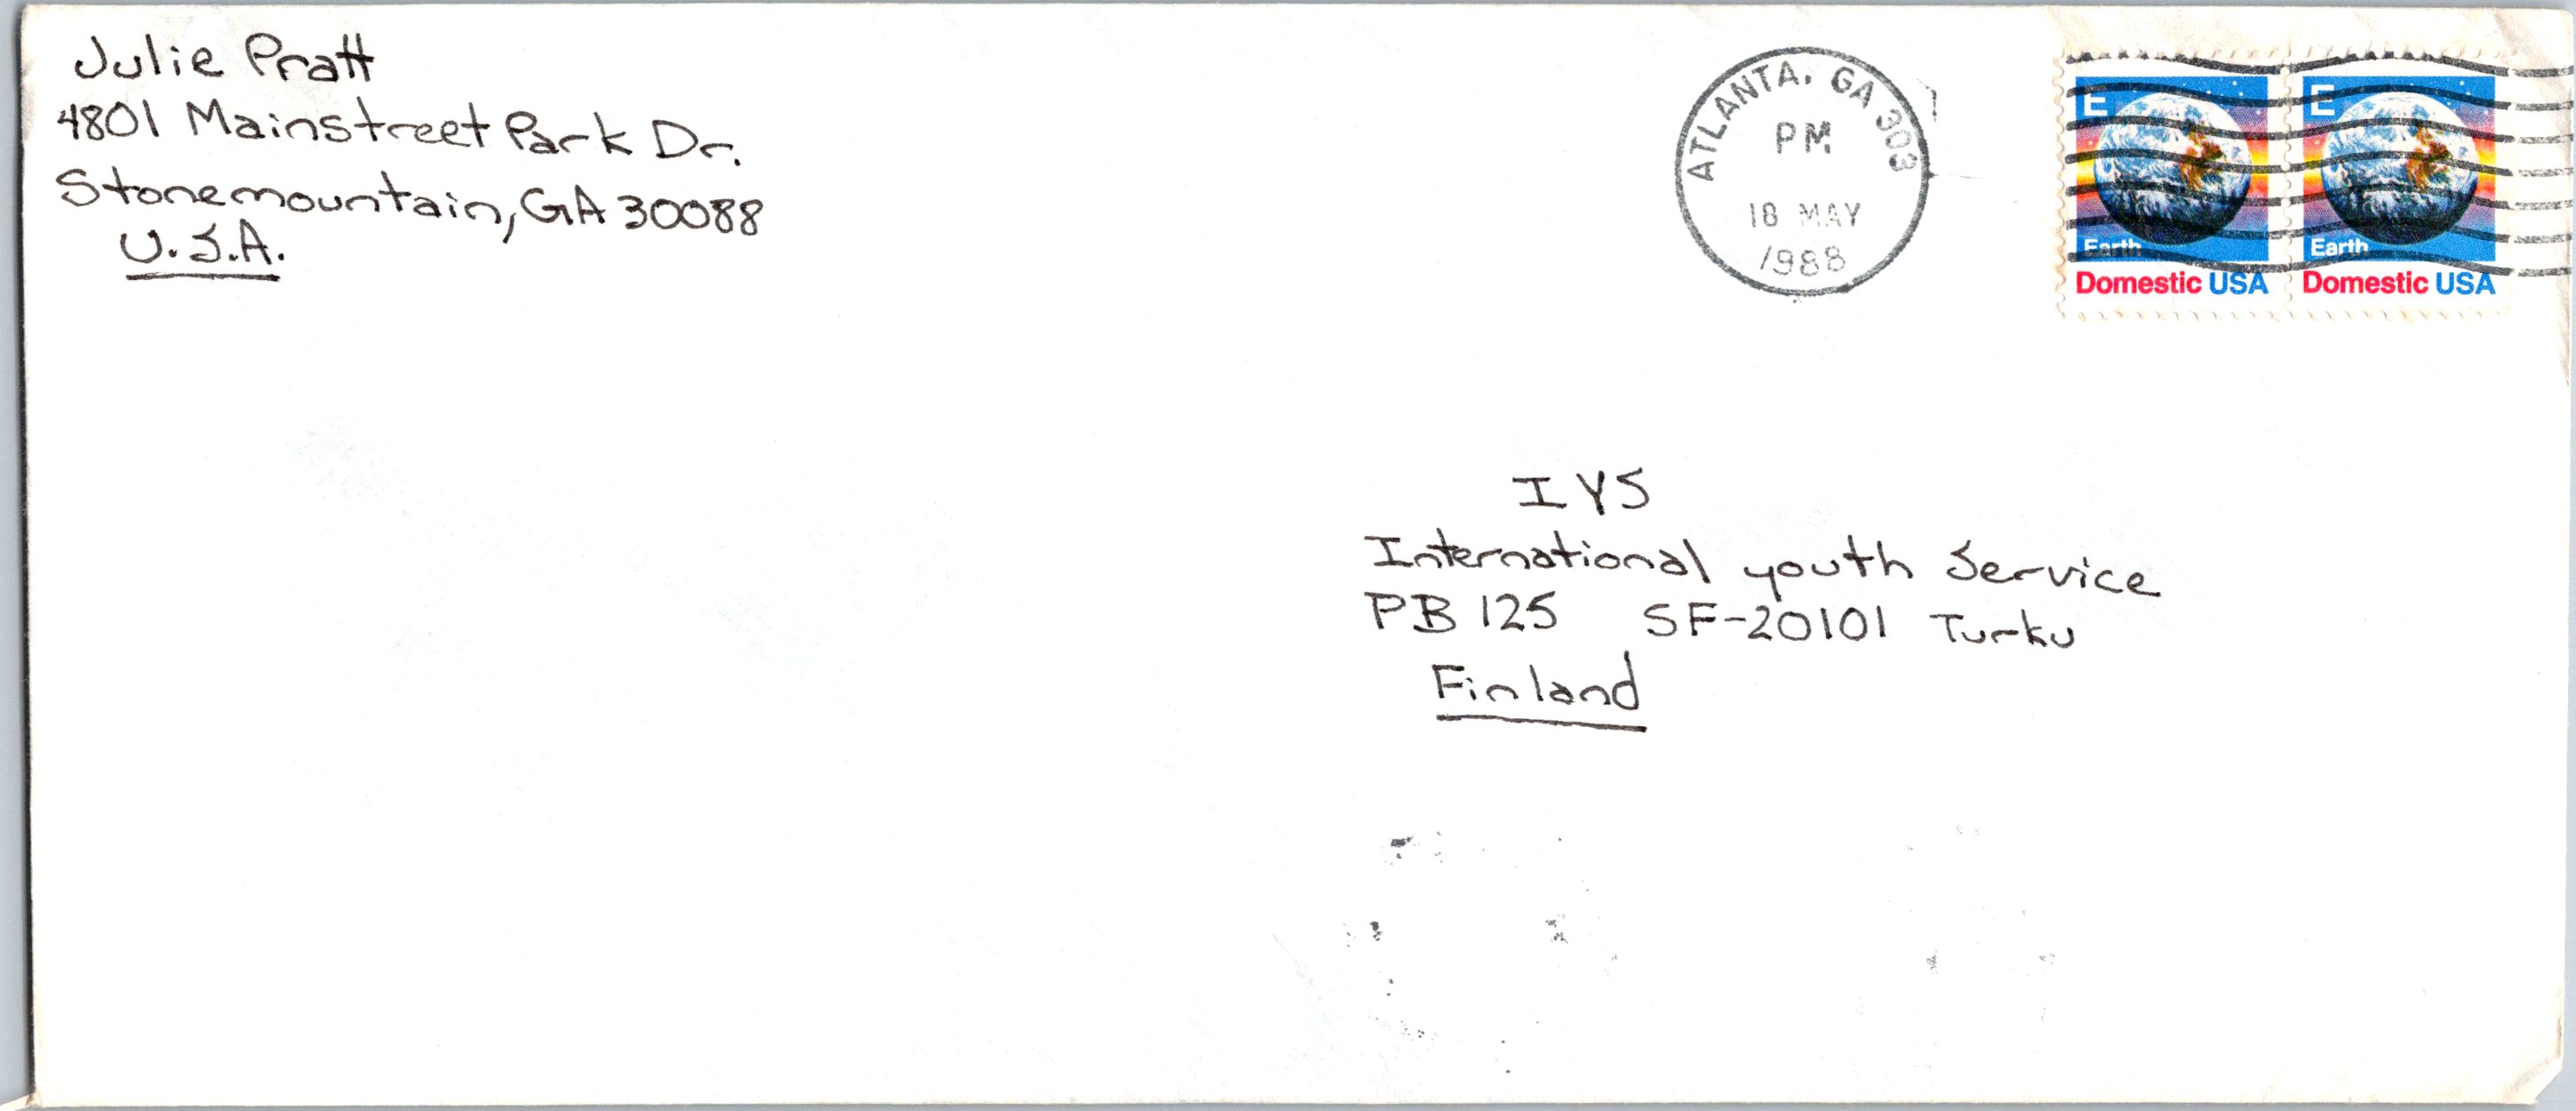 Julie Pratt
4801 Mainstreet Park Dr.
Stonemountain, GA 30088
U.S.A.
ATLANTA, GA 303
PM
18 MAY
1988
E
Earth
Domestic USA
E
Earth
Domestic USA
IYS
International youth Service
PB 125 SF-20101 Turku
Finland